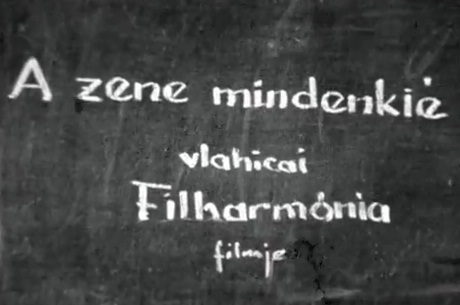 A zene mindenkié
vlahicai
Filharmónia
filmje